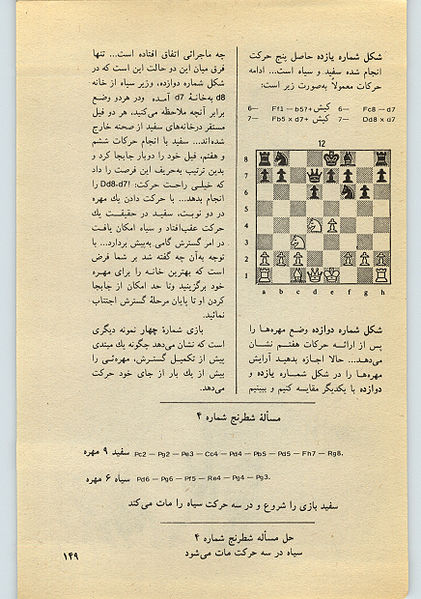 شکل شماره یازده حاصل پنج حرکت
انجام شده سفید و سیاه است... ادامه
حرکات معمولاً به‌صورت زیر است:
6— Ff1 – b5+ کیش 6— Fc8 – d7
7— Fb5 x d7+ کیش 7— Dd8 x d7
12
8
7
6
5
4
3
2
1
a b c d e f g h
شکل شماره دوازده وضع مهره‌ها را
پس از ارائه حرکات هفتم نشان
می‌دهد... حالا اجازه بدهید آرایش
مهره‌ها را در شکل شماره یازده و
دوازده با یکدیگر مقایسه کنیم و ببینیم
چه ماجرائی اتفاق افتاده است... تنها
فرق میان این دو حالت این است که در
شکل شماره دوازده، وزیر سیاه از خانه
d8 به‌خانهٔ d7 آمده ودر هردو وضع
برابر آنچه ملاحظه می‌کنید، هر دو فیل
مستقر درخانه‌های سفید از صحنه خارج
شده‌اند... سفید با انجام حرکات ششم
و هفتم، فیل خود را دوبار جابجا کرد و
بدین ترتیب به‌حریف این فرصت را داد
که خیلی راحت حرکت: Dd8-d7! را
انجام بدهد... با حرکت دادن یك مهره
در دو نوبت، سفید در حقیقت یك
حرکت عقب‌افتاد و سیاه امکان یافت
در امر گسترش گامی به‌پیش بردارد... با
توجه به‌آن چه گفته شد بر شما فرض
است که بهترین خانه را برای مهره
خود برگزینید وتا حد امکان از جابجا
کردن او تا پایان مرحلهٔ گسترش اجتناب
نمائید.
بازی شمارهٔ چهار نمونه دیگری
است که نشان می‌دهد چگونه یك مبتدی
پیش از تکمیل گسترش، مهره‌ئی را
بیش از یك بار از جای خود حرکت
می‌دهد.
مسألهٔ شطرنج شماره ۴
سفید ۹ مهره Pc2 – Pg2 – Pe3 – Cc4 – Pd4 – Pb5 – Pd5 – Fh7 – Rg8.
سیاه ۶ مهره Pd6 – Pg6 – Pf5 – Re4 – Pg4 – Pg3.
سفید بازی را شروع و در سه حرکت سیاه را مات می‌کند
حل مسأله شطرنج شماره ۴
سیاه در سه حرکت مات می‌شود
۱۴۹